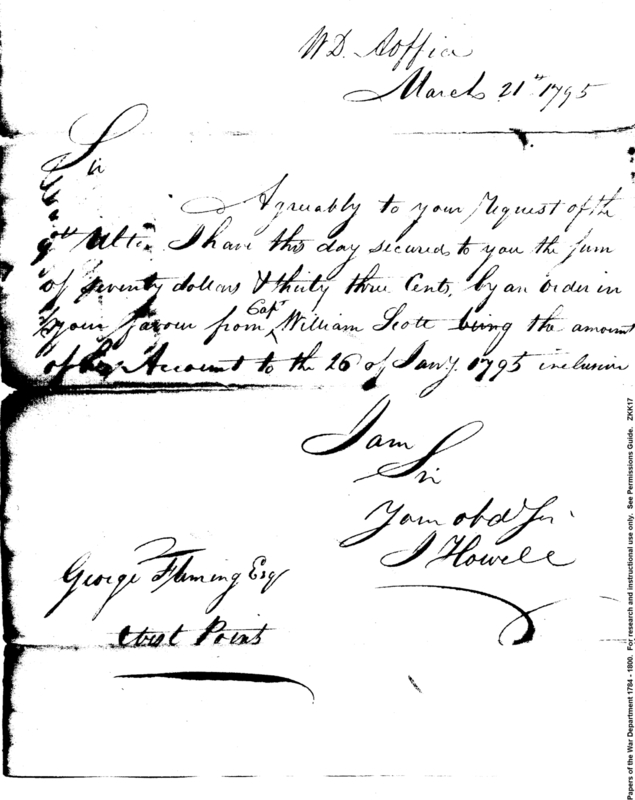 W D. Aoffice
March 21st 1795
Sir
Agreeably to your Request of the
9th Ulto. I have this day secured to you the sum
of seventy dollars & thirty three Cents, by an order in
your favour from Capt William Scott being the amount
of his Account to the 26 of Jany. 1795 inclusive
I am
Sir
Your obd Ser
J Howell
George Fleming Esqr
West Point
Papers of the War Department 1784 - 1800. For research and instructional use only. See Permissions Guide. ZKK17